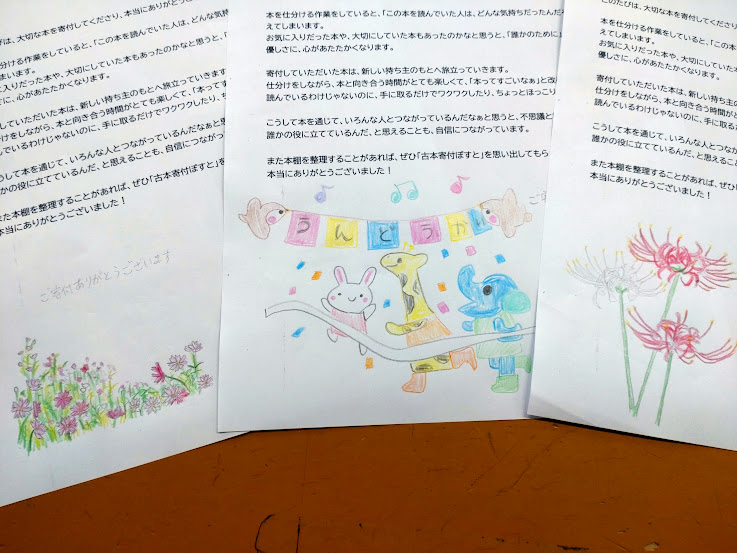 びは、大切な本を寄付してくださり、本当にありがとう
仕分ける作業をしていると、「この本を読んでいた人は、どんな気持
まいます。
気に入りだった本や、大切にしていた本もあったのかなと思うと、「
に、心があたたかくなります。
していただいた本は、新しい持ち主のもとへ旅立っていきます
けをしながら、本と向き合う時間がとても楽しくて、「本ってす
でいるわけじゃないのに、手に取るだけでワクワクしたり、ち
して本を通じて、いろんな人とつながっているんだなぁと思
かの役に立てているんだ、と思えることも、自信につながっ
また本棚を整理することがあれば、ぜひ「古本寄付ぽすと」を
本当にありがとうございました！
ご寄付ありがとうございます
本を仕分ける作業をしていると、「この本を読んでいた人は、どんな気持ちだったんだ
えてしまいます。
お気に入りだった本や、大切にしていた本もあったのかなと思うと、「誰かのために」
優しさに、心があたたかくなります。
寄付していただいた本は、新しい持ち主のもとへ旅立っていきます。
仕分けをしながら、本と向き合う時間がとても楽しくて、「本ってすごいなぁ」と改
読んでいるわけじゃないのに、手に取るだけでワクワクしたり、ちょっとほっこり
こうして本を通じて、いろんな人とつながっているんだなぁと思うと、不思議と
誰かの役に立てているんだ、と思えることも、自信につながっています。
また本棚を整理することがあれば、ぜひ「古本寄付ぽすと」を思い出してもら
本当にありがとうございました！
うんどうかい
ご
このたびは、大切な本を寄付してくださり
本を仕分ける作業をしていると、「この本
えてしまいます。
お気に入りだった本や、大切にしていた本
優しさに、心があたたかくなります。
寄付していただいた本は、新しい持ち主
仕分けをしながら、本と向き合う時間が
読んでいるわけじゃないのに、手に取る
こうして本を通じて、いろんな人とつな
誰かの役に立てているんだ、と思える
また本棚を整理することがあれば、ぜひ
本当にありがとうございました！